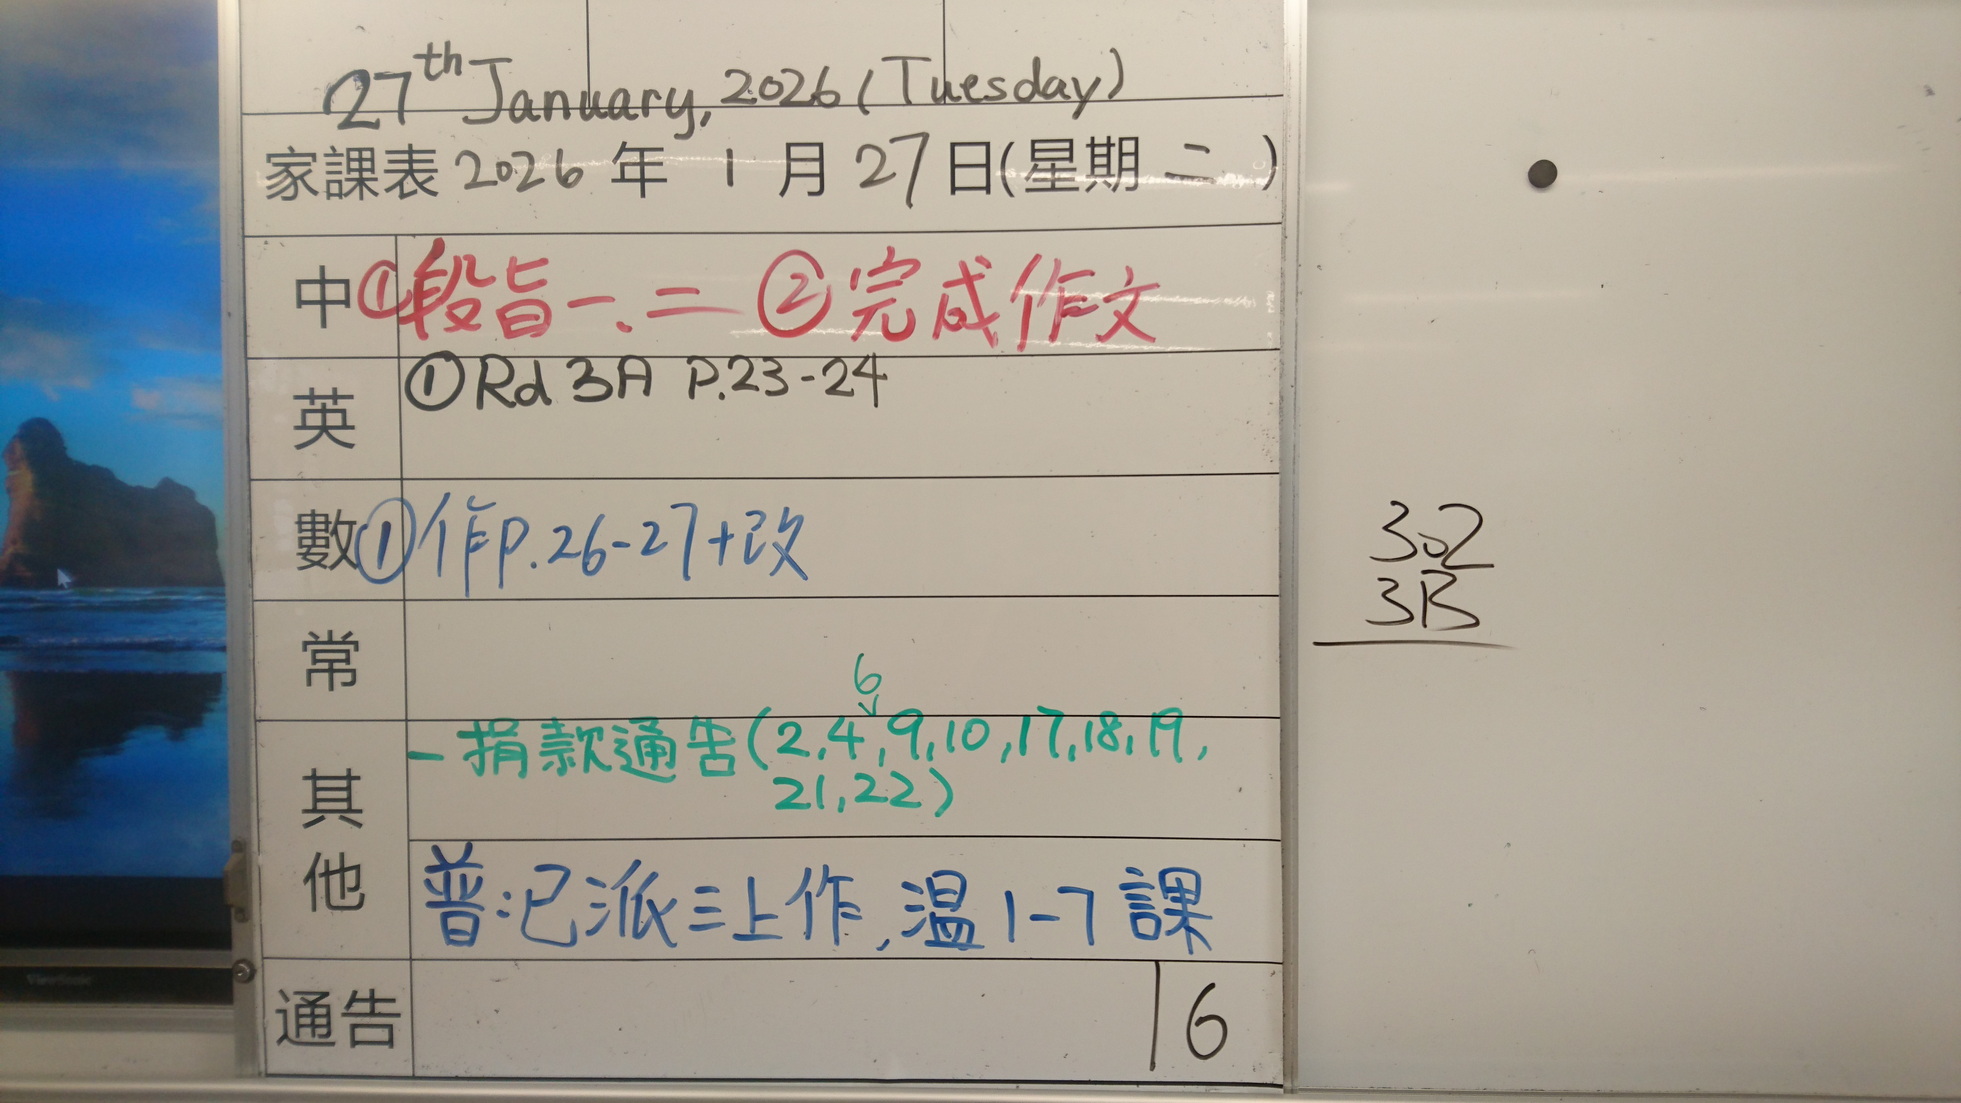 27th January, 2026 (Tuesday)
家課表 2026 年 1 月 27 日(星期 二 )
中 ①段旨一、二 ②完成作文
英 ①Rd 3A P.23-24
數 ①作P.26-27+改
常
6
其他 -捐款通告(2,4,9,10,17,18,19,
21,22)
普:已派三上作,温1-7課
通告 16
302
3B
ViewSonic